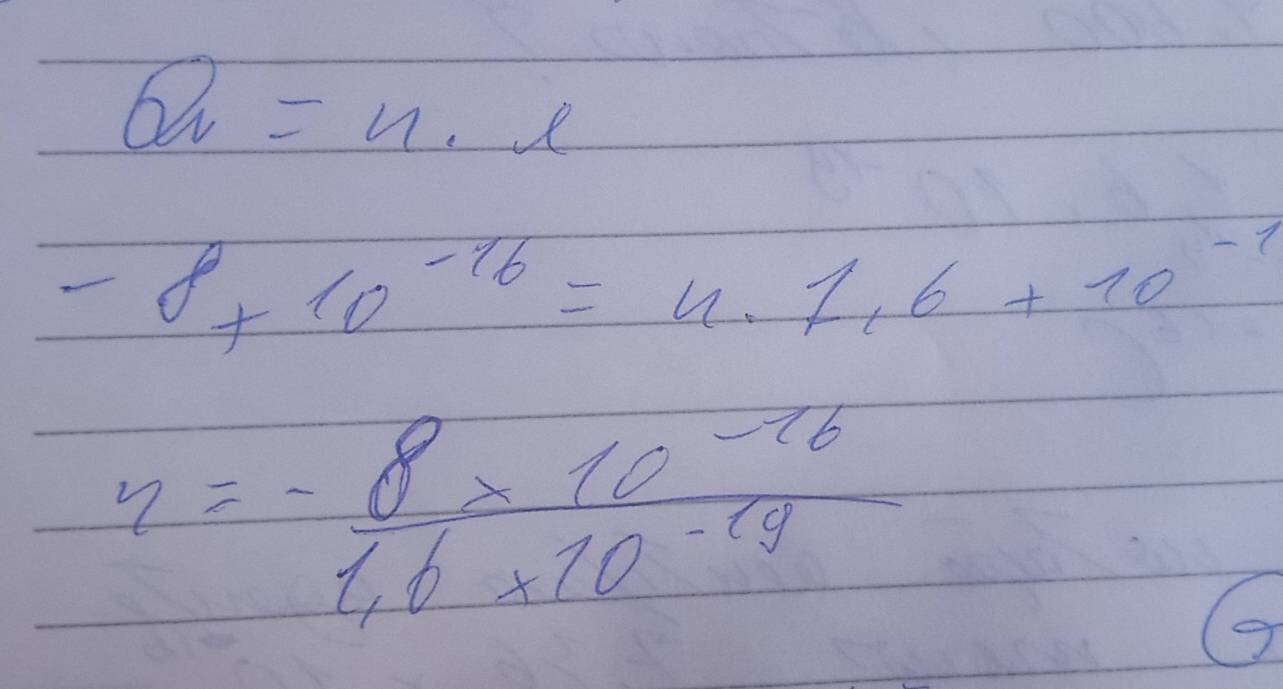 Q = n. e
- 8 x 10^-16 = n. 1,6 x 10^-1
n = - 8 x 10^-16
1,6 x 10^-19